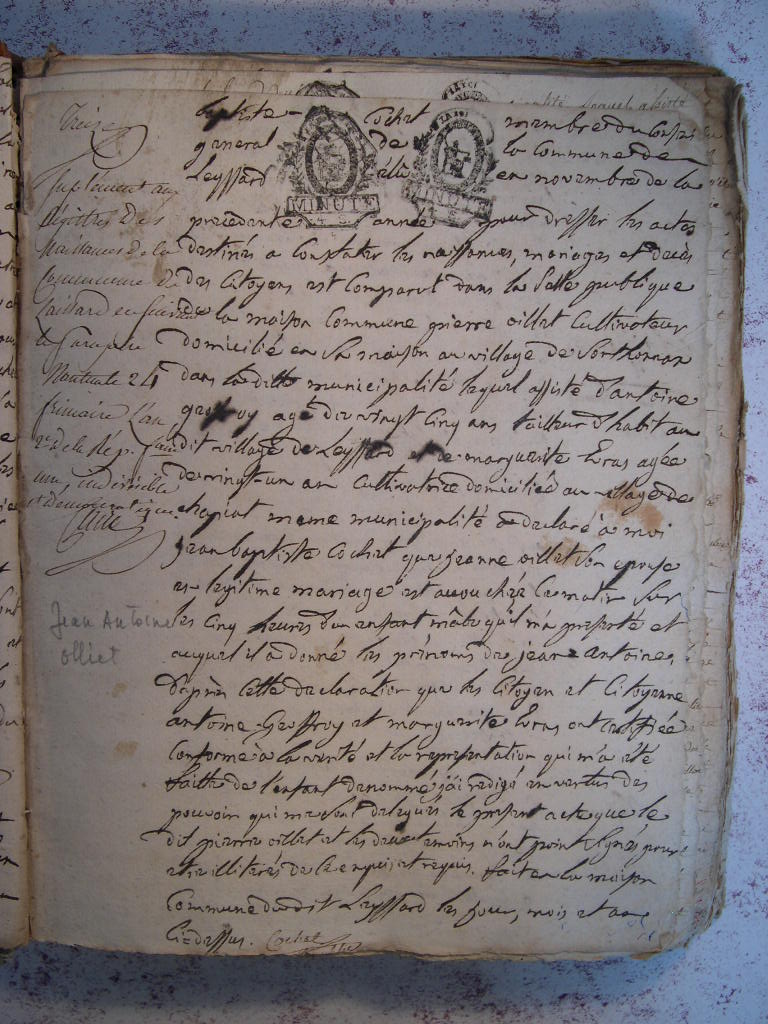 treize
Suplément aux
Régittres des
Naissances de la
commune de
paraphe
24
frimaire L'an
2e de la Rép.
une, indivisible
et Démocratique
Jean Antoine
olliet
MINUTE
MINUTE
Baptiste Cochet membre du Conseil
general de la Commune de
Leyssard élu en novembre de la
precedante année pour dresser les actes
destinés a Constater les naissances, mariages et décès
des Citoyens est Comparut dans la Salle publique
de la maison Commune pierre oillet Cultivateur
domicilié en Sa maison au village de
dans la ditte municipalité lequel assisté d'antoine
geoffroy agé de vingt Cinq ans tailleur d'habit au
dit village de Leyssard et de marguerite Eras agée
de vingt-un an Cultivatrice domiciliée au village de
chapiat meme municipalité a declaré à moi
jean baptiste Cochet que jeanne oillet Son epouse
en legitime mariage est accouchée Ce matin Sur
les Cinq heures d'un enfant mâle qu'il m'a presenté et
auquel il a donné les prénoms de jean-Antoine,
d'après Cette declaration que les Citoyen et Citoyenne
antoine Geoffroy et marguerite Eras ont Certifiée
Conforme à la verité et la representation qui m'a été
faitte de l'enfant denommé j'ai redigé en vertus des
pouvoir qui me Sont delegués le present acte que le
dit pierre oillet et les deux temoins n'ont point Signés pour
etre illiterés de Ce enquis et requis. fait en la maison
Commune dudit Leyssard les jour, mois et an
Ci-dessus. Cochet